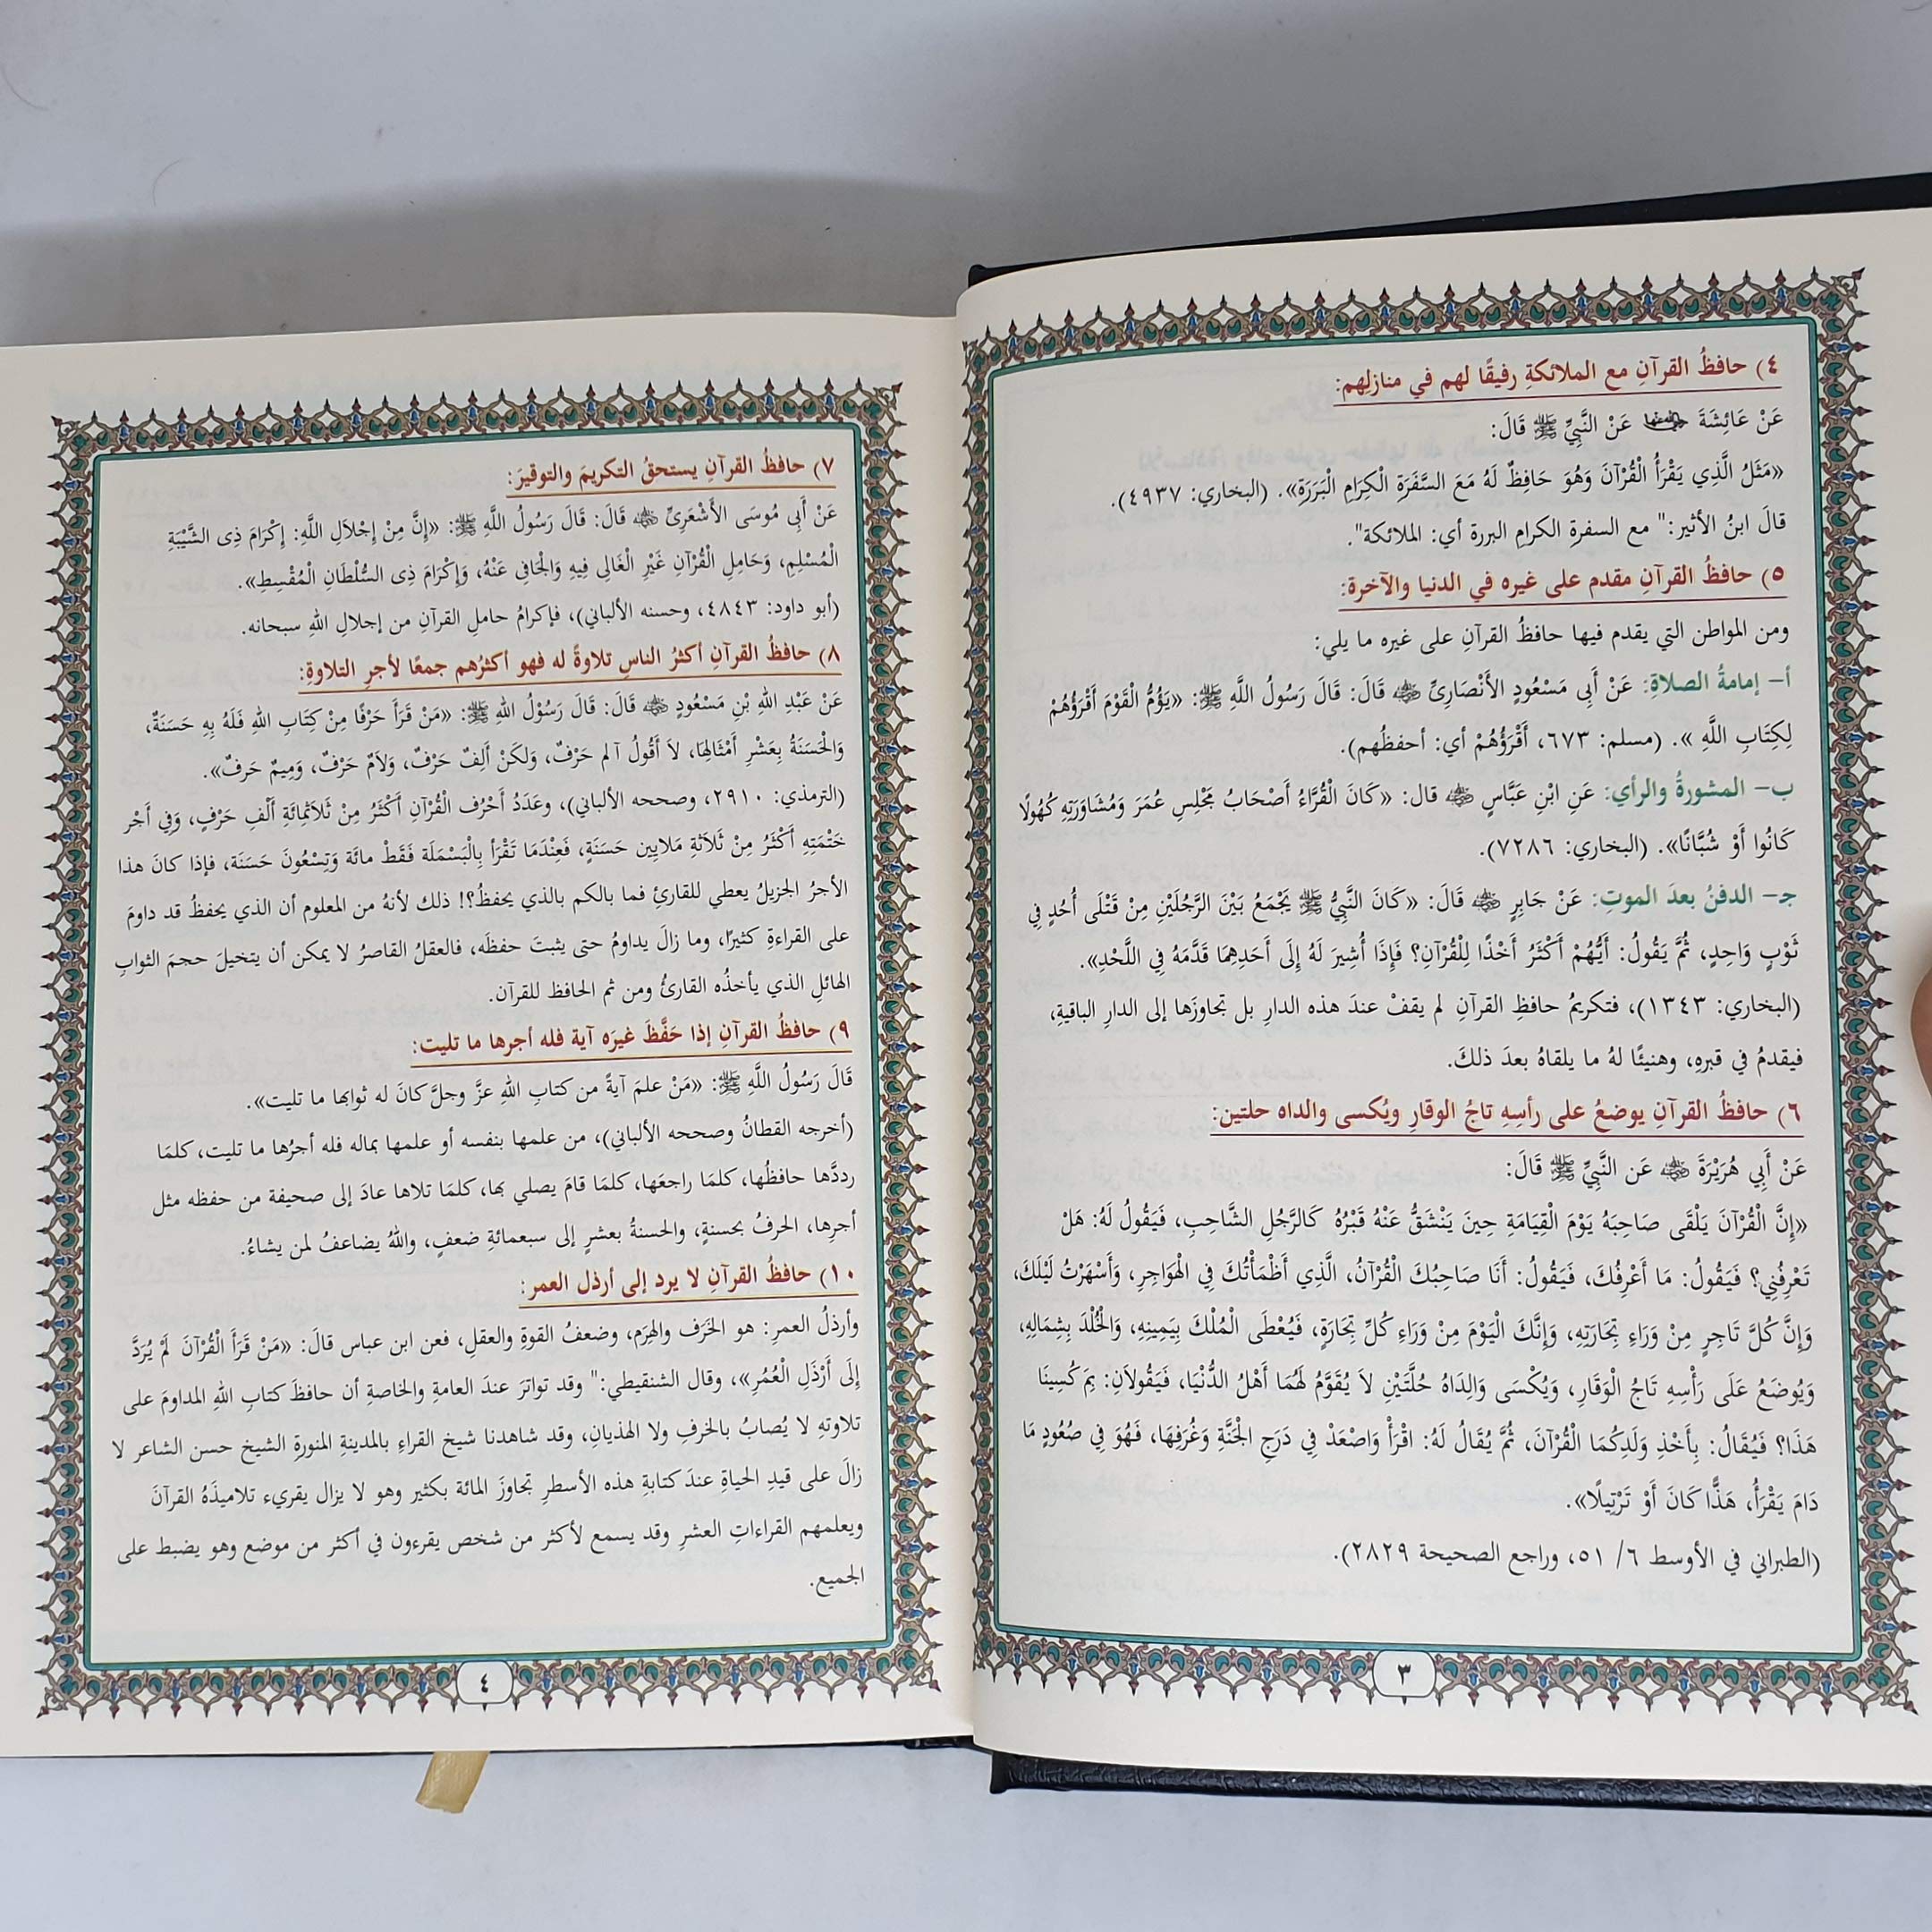 ٤) حافظُ القرآنِ مع الملائكةِ رفيقًا لهم في منازلِهم:
عَنْ عَائِشَةَ رضي الله عنها عَنْ النَّبِيِّ ﷺ قَالَ:
«مَثَلُ الَّذِي يَقْرَأُ الْقُرْآنَ وَهُوَ حَافِظٌ لَهُ مَعَ السَّفَرَةِ الْكِرَامِ الْبَرَرَةِ». (البخاري: ٤٩٣٧).
قالَ ابنُ الأثير:" مع السفرةِ الكرامِ البررة أي: الملائكة".
٥) حافظُ القرآنِ مقدم على غيره في الدنيا والآخرة:
ومن المواطن التي يقدم فيها حافظُ القرآنِ على غيره ما يلي:
أ- إمامةُ الصلاةِ: عَنْ أَبِى مَسْعُودٍ الأَنْصَارِىِّ رضي الله عنه قَالَ: قَالَ رَسُولُ اللَّهِ ﷺ: «يَؤُمُّ الْقَوْمَ أَقْرَؤُهُمْ
لِكِتَابِ اللَّهِ ». (مسلم: ٦٧٣، أَقْرَؤُهُمْ أي: أحفظُهم).
ب- المشورةُ والرأي: عَنِ ابْنِ عَبَّاسٍ رضي الله عنه قال: «كَانَ الْقُرَّاءُ أَصْحَابُ مَجْلِسِ عُمَرَ وَمُشَاوَرَتِهِ كُهُولًا
كَانُوا أَوْ شُبَّانًا». (البخاري: ٧٢٨٦).
جـ- الدفنُ بعدَ الموتِ: عَنْ جَابِرٍ رضي الله عنه قَالَ: «كَانَ النَّبِيُّ ﷺ يَجْمَعُ بَيْنَ الرَّجُلَيْنِ مِنْ قَتْلَى أُحُدٍ فِي
ثَوْبٍ وَاحِدٍ، ثُمَّ يَقُولُ: أَيُّهُمْ أَكْثَرُ أَخْذًا لِلْقُرْآنِ؟ فَإِذَا أُشِيرَ لَهُ إِلَى أَحَدِهِمَا قَدَّمَهُ فِي اللَّحْدِ».
(البخاري: ١٣٤٣)، فتكريمُ حافظِ القرآنِ لم يقفْ عندَ هذه الدارِ بل تجاوزَها إلى الدارِ الباقيةِ،
فيقدمُ في قبرهِ، وهنيئًا لهُ ما يلقاهُ بعدَ ذلكَ.
٦) حافظُ القرآنِ يوضعُ على رأسِهِ تاجُ الوقارِ ويُكسى والداه حلتين:
عَنْ أَبِي هُرَيْرَةَ رضي الله عنه عَن النَّبِيِّ ﷺ قَالَ:
«إِنَّ الْقُرْآنَ يَلْقَى صَاحِبَهُ يَوْمَ الْقِيَامَةِ حِينَ يَنْشَقُّ عَنْهُ قَبْرُهُ كَالرَّجُلِ الشَّاحِبِ، فَيَقُولُ لَهُ: هَلْ
تَعْرِفُنِي؟ فَيَقُولُ: مَا أَعْرِفُكَ، فَيَقُولُ: أَنَا صَاحِبُكَ الْقُرْآنُ، الَّذِي أَظْمَأْتُكَ فِي الْهَوَاجِرِ، وَأَسْهَرْتُ لَيْلَكَ،
وَإِنَّ كُلَّ تَاجِرٍ مِنْ وَرَاءِ تِجَارَتِهِ، وَإِنَّكَ الْيَوْمَ مِنْ وَرَاءِ كُلِّ تِجَارَةٍ، فَيُعْطَى الْمُلْكَ بِيَمِينِهِ، وَالْخُلْدَ بِشِمَالِهِ،
وَيُوضَعُ عَلَى رَأْسِهِ تَاجُ الْوَقَارِ، وَيُكْسَى وَالِدَاهُ حُلَّتَيْنِ لاَ يُقَوَّمُ لَهُمَا أَهْلُ الدُّنْيَا، فَيَقُولاَنِ: بِمَ كُسِينَا
هَذَا؟ فَيُقَالُ: بِأَخْذِ وَلَدِكُمَا الْقُرْآنَ، ثُمَّ يُقَالُ لَهُ: اقْرَأْ وَاصْعَدْ فِي دَرَجِ الْجَنَّةِ وَغُرَفِهَا، فَهُوَ فِي صُعُودٍ مَا
دَامَ يَقْرَأُ، هَذًّا كَانَ أَوْ تَرْتِيلًا».
(الطبراني في الأوسط ٦/ ٥١، وراجع الصحيحة ٢٨٢٩).
٣
٧) حافظُ القرآنِ يستحقُ التكريمَ والتوقيرَ:
عَنْ أَبِى مُوسَى الأَشْعَرِىِّ رضي الله عنه قَالَ: قَالَ رَسُولُ اللَّهِ ﷺ: «إِنَّ مِنْ إِجْلاَلِ اللَّهِ: إِكْرَامَ ذِى الشَّيْبَةِ
الْمُسْلِمِ، وَحَامِلِ الْقُرْآنِ غَيْرِ الْغَالِى فِيهِ وَالْجَافِى عَنْهُ، وَإِكْرَامَ ذِى السُّلْطَانِ الْمُقْسِطِ».
(أبو داود: ٤٨٤٣، وحسنه الألباني)، فإكرامُ حاملِ القرآنِ من إجلالِ اللهِ سبحانه.
٨) حافظُ القرآنِ أكثرُ الناسِ تلاوةً له فهو أكثرُهم جمعًا لأجرِ التلاوةِ:
عَنْ عَبْدِ اللهِ بْنِ مَسْعُودٍ رضي الله عنه قَالَ: قَالَ رَسُوْلُ اللهِ ﷺ: «مَنْ قَرَأَ حَرْفًا مِنْ كِتَابِ اللهِ فَلَهُ بِهِ حَسَنَةٌ،
وَالْحَسَنَةُ بِعَشْرِ أَمْثَالِهَا، لاَ أَقُولُ آلم حَرْفٌ، وَلَكِنْ أَلِفٌ حَرْفٌ، وَلاَمٌ حَرْفٌ، وَمِيمٌ حَرفٌ».
(الترمذي: ٢٩١٠، وصححه الألباني)، وعَدَدُ أَحْرُفِ الْقُرْآنِ أَكْثَرُ مِنْ ثَلاَثمِائَةِ أَلْفِ حَرْفٍ، وَفِي أَجْر
خَتْمَتِهِ أَكْثَرُ مِنْ ثَلاَثَةِ مَلايِين حَسَنَةٍ، فَعِنْدَمَا تَقْرَأ بِالْبَسْمَلَة فَقَطْ مائَة وَتِسْعُونَ حَسَنَة، فإذا كانَ هذا
الأجرُ الجزيلُ يعطي للقارئِ فما بالكم بالذي يحفظُ؟! ذلك لأنهُ من المعلوم أن الذي يحفظُ قد داومَ
على القراءةِ كثيرًا، وما زالَ يداومُ حتى يثبتَ حفظَه، فالعقلُ القاصرُ لا يمكن أن يتخيلَ حجمَ الثوابِ
الهائلِ الذي يأخذُه القارئُ ومن ثم الحافظ للقرآن.
٩) حافظُ القرآنِ إذا حَفَّظَ غيرَه آية فله أجرها ما تليت:
قَالَ رَسُولُ اللَّهِ ﷺ: «مَنْ علمَ آيةً من كتابِ اللهِ عزَّ وجلَّ كانَ له ثوابها ما تليت».
(أخرجه القطانُ وصححه الألباني)، من علمها بنفسه أو علمها بماله فله أجرُها ما تليت، كلمَا
رددَّها حافظُها، كلمَا راجعَها، كلمَا قامَ يصلي بها، كلمَا تلاها عادَ إلى صحيفة من حفظه مثل
أجرِها، الحرفُ بحسنةٍ، والحسنةُ بعشرٍ إلى سبعمائةِ ضعفٍ، واللهُ يضاعفُ لمن يشاءُ.
١٠) حافظُ القرآنِ لا يرد إلى أرذل العمر:
وأرذلُ العمرِ: هو الخَرَف والهِرَم، وضعفُ القوةِ والعقلِ، فعن ابن عباس قالَ: «مَنْ قَرَأَ الْقُرْآنَ لَمْ يُرَدَّ
إِلَى أَرْذَلِ الْعُمُرِ»، وقال الشنقيطي:" وقد تواترَ عندَ العامةِ والخاصةِ أن حافظَ كتابِ اللهِ المداومَ على
تلاوتهِ لا يُصابُ بالخرفِ ولا الهذيانِ، وقد شاهدنا شيخ القراءِ بالمدينةِ المنورةِ الشيخ حسن الشاعر لا
زالَ على قيدِ الحياةِ عندَ كتابةِ هذه الأسطرِ تجاوزَ المائة بكثير وهو لا يزال يقريء تلاميذَهُ القرآنَ
ويعلمهم القراءاتِ العشرِ وقد يسمع لأكثر من شخص يقرءون في أكثر من موضع وهو يضبط على
الجميع.
٤